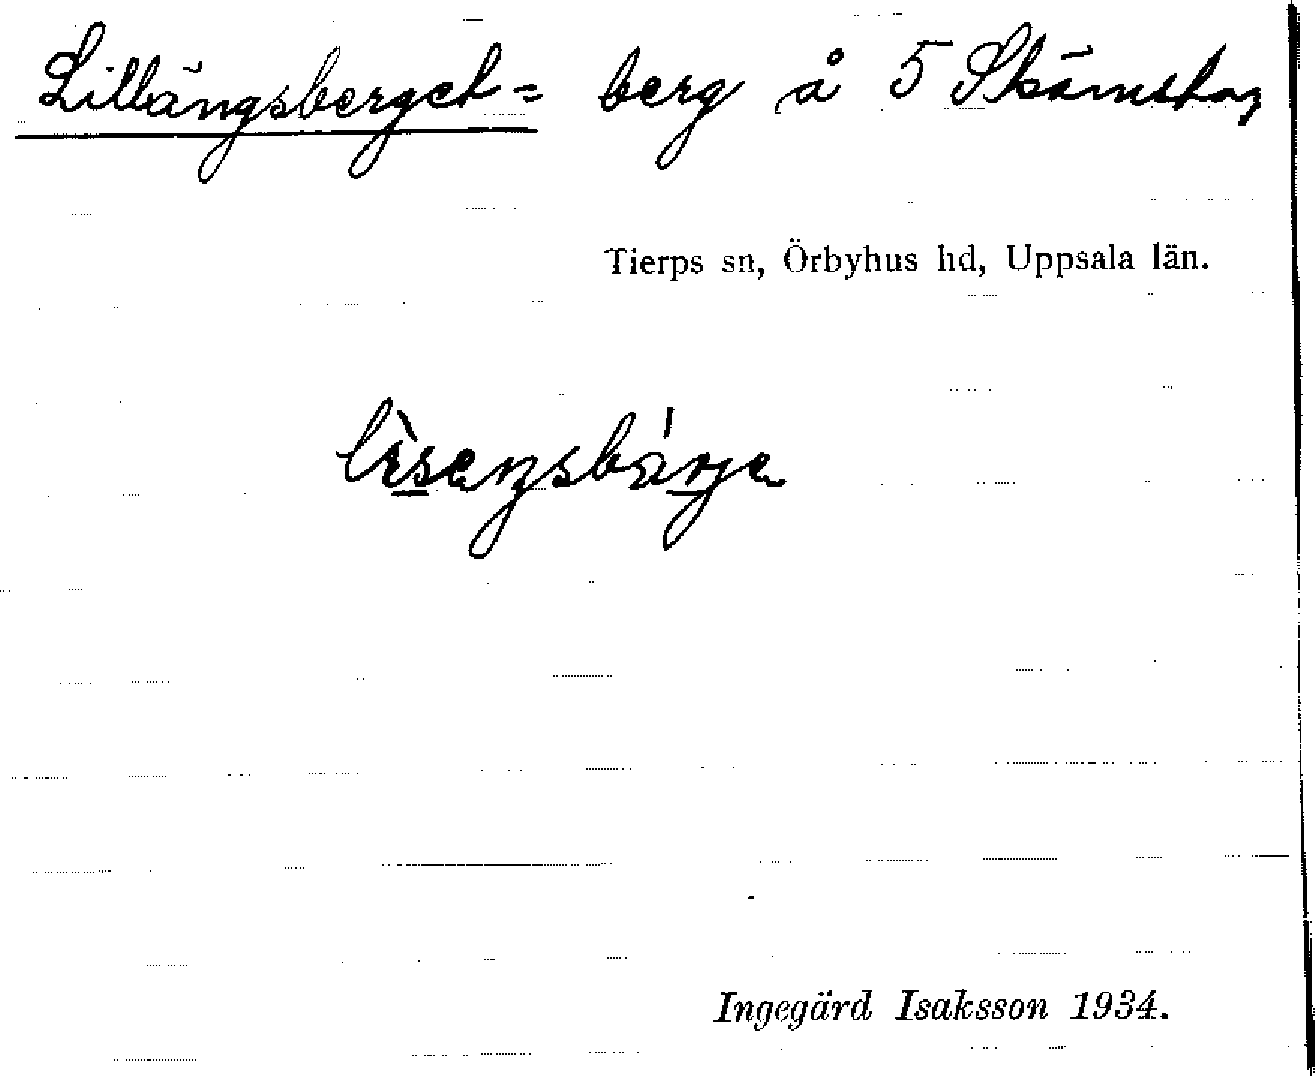 Lillängsberget = berg å 5 Skämsta,
Tierps sn, Örbyhus hd, Uppsala län.
Ingegärd Isaksson 1934.